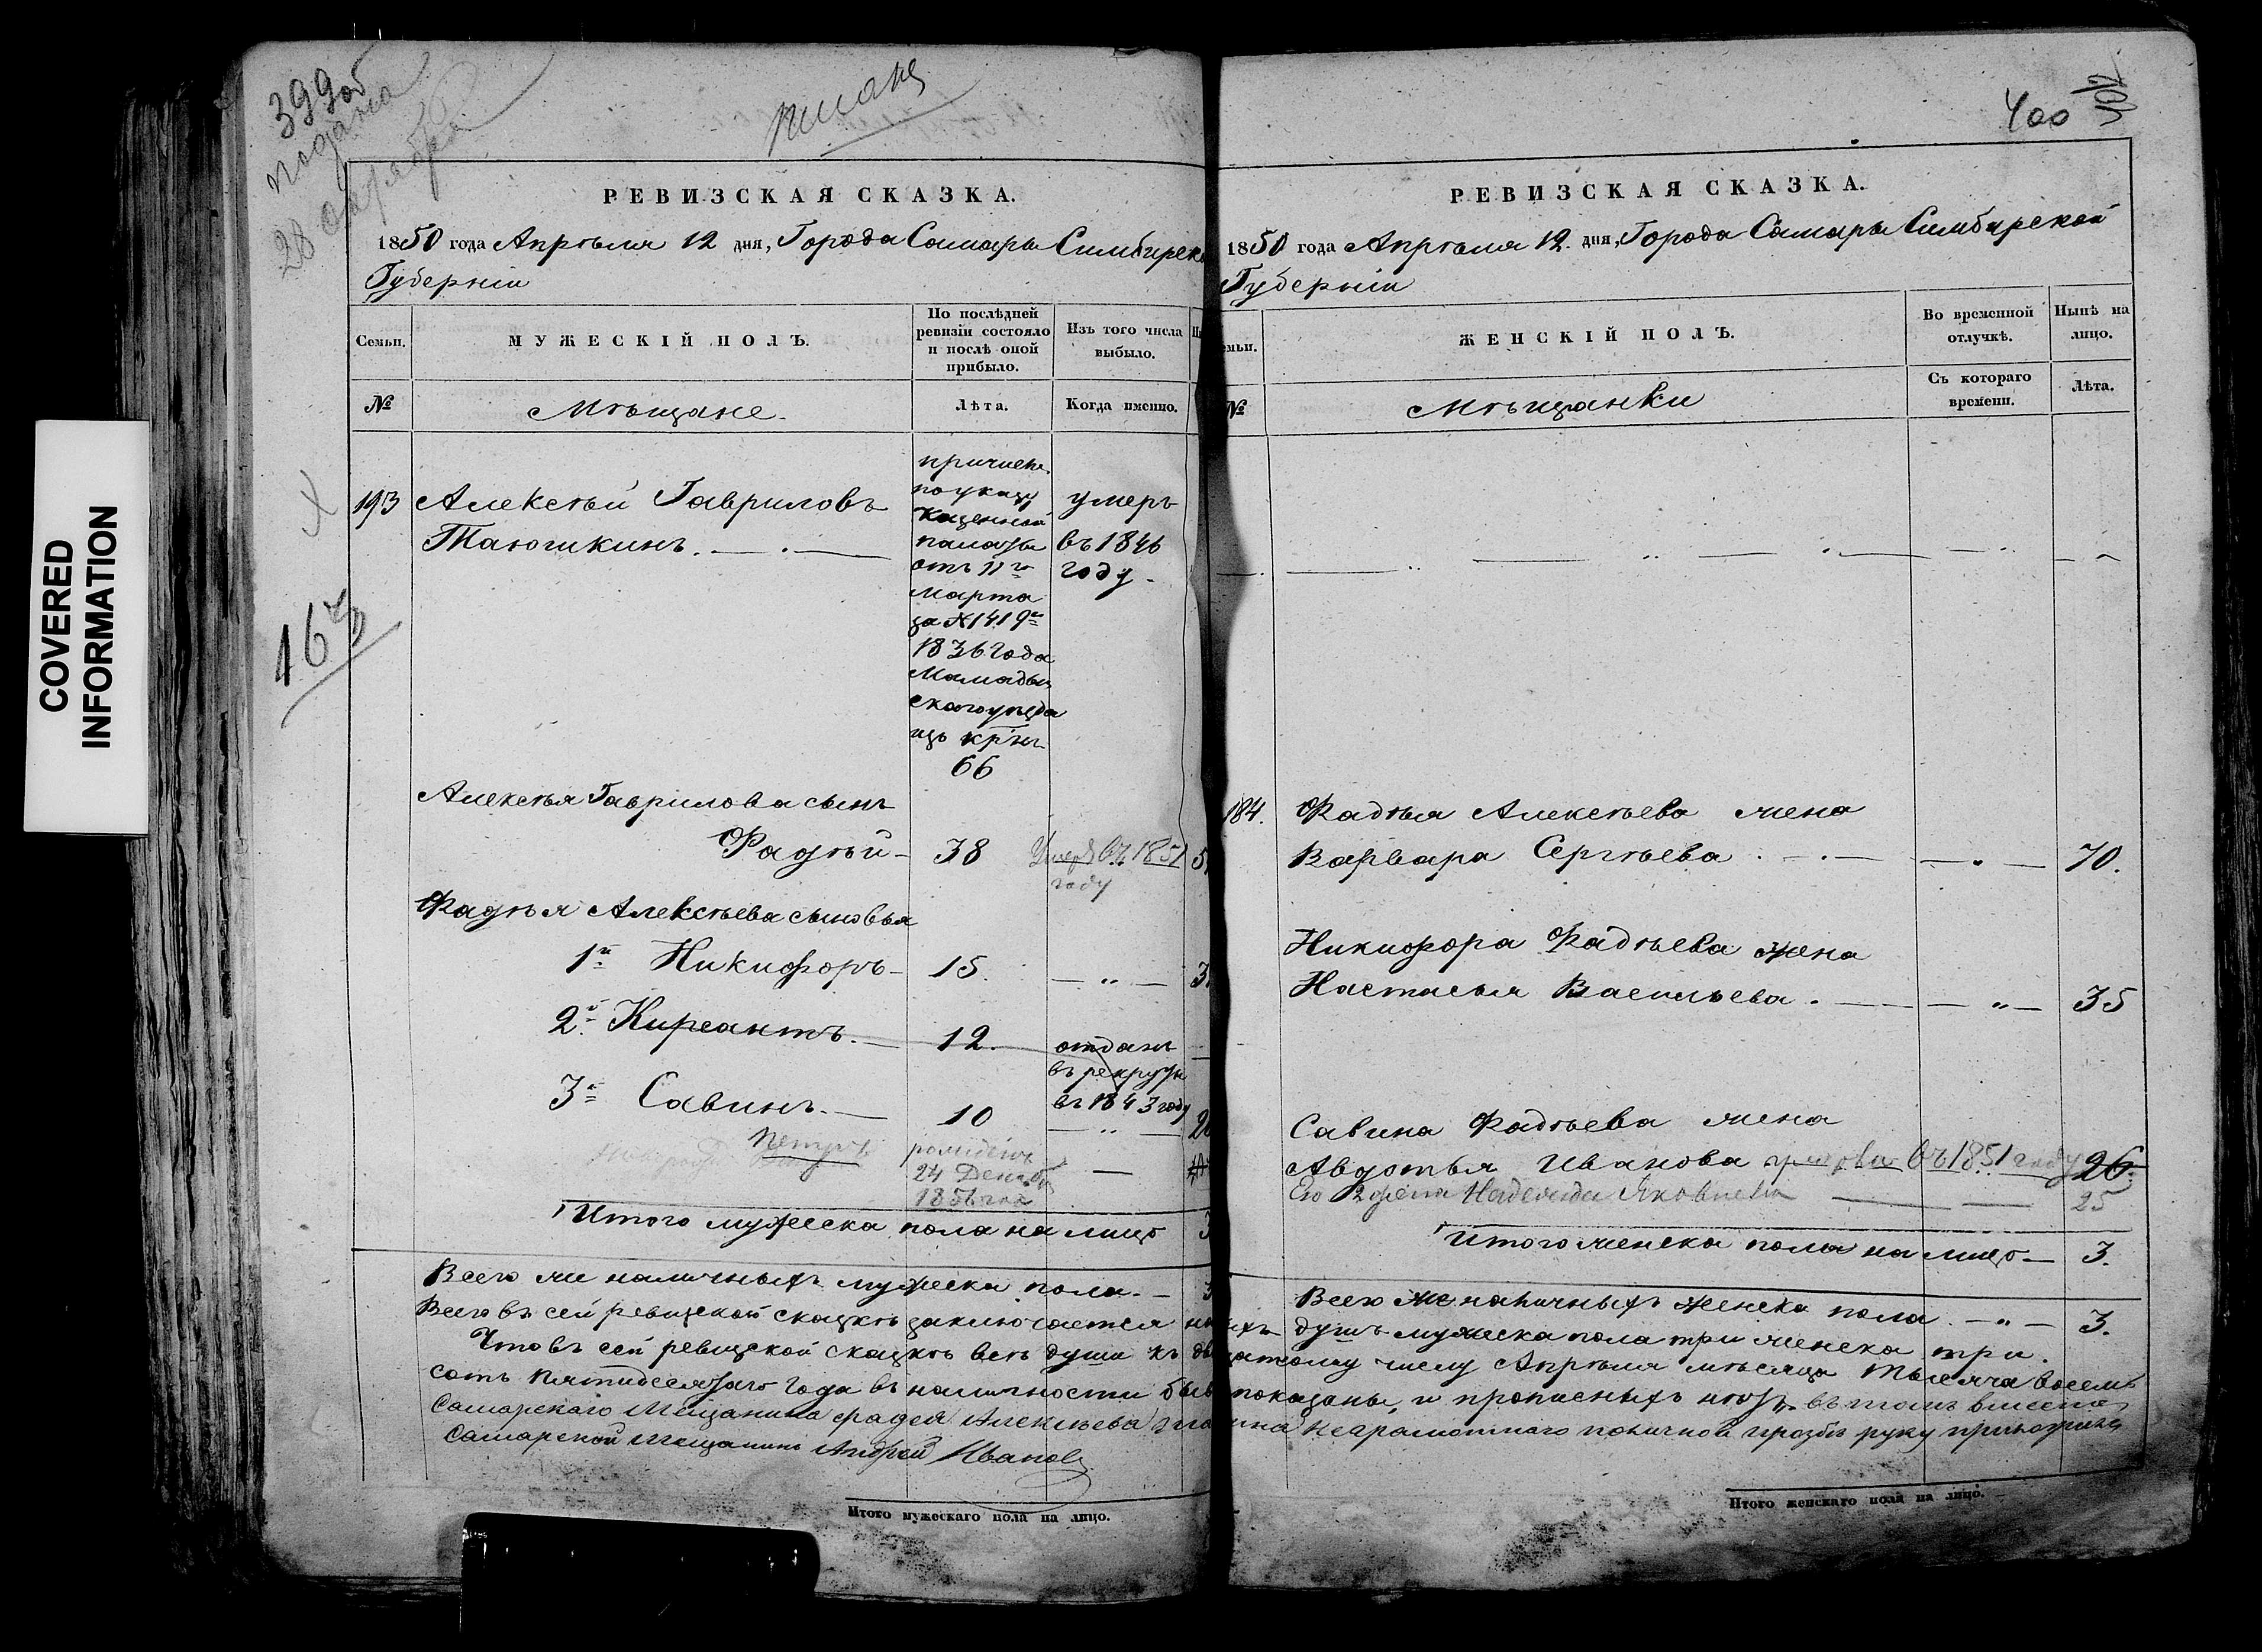 COVERED
INFORMATION
399об
подана
28 октября
400
РЕВИЗСКАЯ СКАЗКА.
1850 года Апрѣля 12 дня, Города Самары Симбирск
Губерніи
Семьи.
МУЖЕСКІЙ ПОЛЪ.
По послѣдней ревизіи состояло и послѣ оной прибыло.
Изъ того числа выбыло.
№
Мѣщане.
Лѣта.
Когда именно.
193 Алексѣй Гавриловъ
Таюшкинъ.
причислен.
по указу
казенной
палаты
отъ 11го
марта
за № 1419м
1836 года
Мамадыш
скаго уѣзда
изъ крнъ
66
умеръ
въ 1846
году.
163
Алексѣя Гаврилова сынъ
Фадѣй 38 Умеръ въ 1851
году
Фадѣя Алексѣева сыновья
1й Никифоръ 15.
2й Кирсантъ. 12. отданъ
въ рекруты
въ 1843 году
3й Савинъ. 10
Петръ рожденъ
24 Декаб
1856 год
Итого мужеска пола на лицо
Всего же наличныхъ мужеска пола.
РЕВИЗСКАЯ СКАЗКА.
1850 года Апрѣля 12. дня, Города Самары Симбирской
Губерніи
ЖЕНСКІЙ ПОЛЪ.
Во временной отлучкѣ.
Нынѣ на лицо.
№
Мѣщанки
Съ котораго времени.
Лѣта.
184. Фадѣя Алексѣева жена
Варвара Сергѣева 70.
Никифора Фадѣева жена
Настасья Васильева. 35
Савина Фадѣева жена
Авдотья Иванова умерла въ 1851 году 26.
Его 2 жена Надежда Яковлева 25
Итого женска пола на лицо 3.
Всего же наличныхъ женска пола. 3.
Всего въ сей ревизской сказкѣ заключается на ихъ душъ мужеска пола три женска три.
Что въ сей ревизской сказкѣ всѣ души къ дв цатому числу Апрѣля мѣсяца тысяча восемь
сотъ пятидесятаго года въ наличности быв показаны, и прописныхъ нѣтъ, въ томъ вместо
Самарскаго Мещанина Фадея Алексѣева неграмотнаго по личной прозбѣ руку приложилъ
Самарской Мещанинъ Андрей Ивановъ
Итого мужескаго пола на лицо.
Итого женскаго пола на лицо.